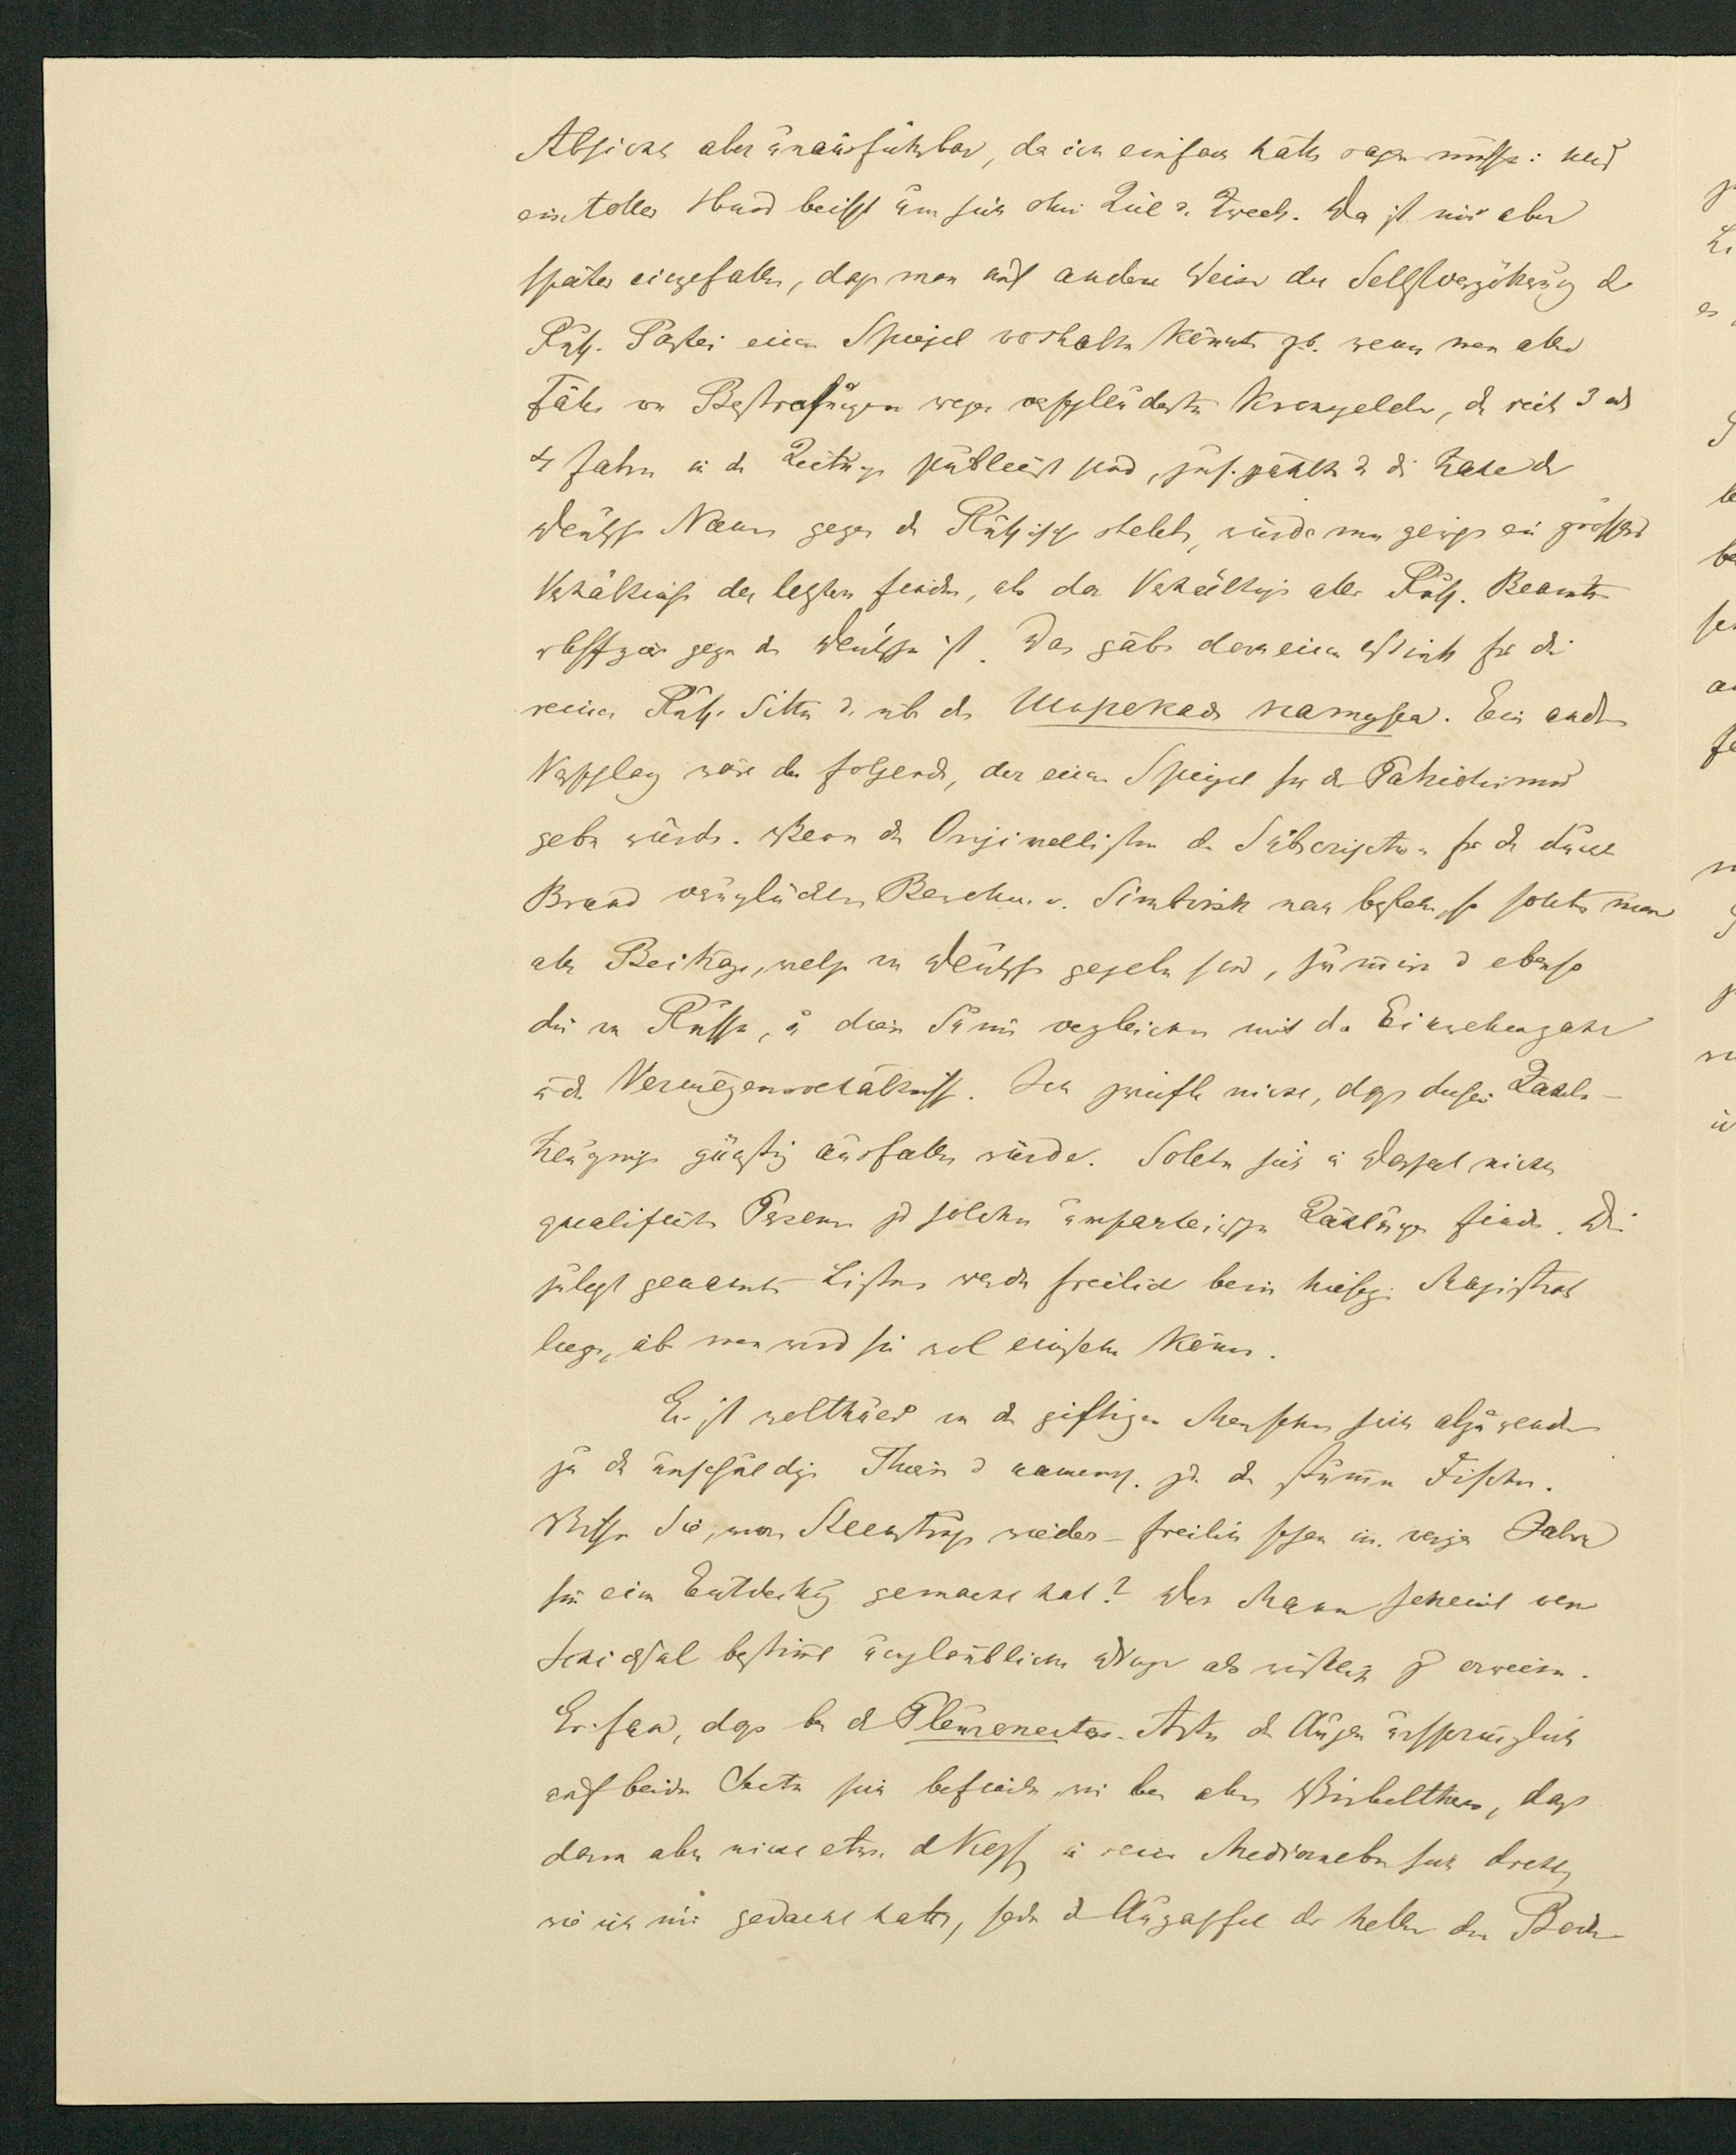 Absicht aber unausführbar, da ich einfach hätte sagen müssen: und
ein toller Hund beisst um sich ohne Ziel u. Zweck. Da ist mir aber
später eingefallen, dass man auf andere Weise der Selbstvergötterung d.
Russ. Partei einen Spiegel vorhalten könnte z.b. wenn man alle
Fälle von Bestrafungen wegen verschleuderter Krongelder, die seit 3 od
4 Jahren in den Zeitungen publicirt sind, zus. zählte u. die Zahl der
Deutschen Namen gegen die Russischen stellte, würde man gewiss ein grösseres
Verhältniss der letztern finden, als das Verhältniss aller Russ. Beamten
gegen die Deutschen ist. Das gäbe dann einen Wink für die
reinen Russ. Sitten u. üb. die широкая натура. Ein andrer
Vorschlag wäre der folgende, der einen Spiegel für den Patriotismus
geben würde. Wenn die Originallisten der Subscription für die durch
Brand verunglückten Bewohner v. Simbirsk noch bestehen, so sollte man
alle Beiträge, welche von Deutschen gegeben sind, summiren u. ebenso
die von Russen, u. diese Summen vergleichen mit der Einwohnerzahl
u. den Vermögensverhältnissen. Ich zweifle nicht, dass diese Zahlen-
zeugnisse günstig ausfallen würde. Sollten sich in Dorpat nicht
qualificirte Personen zu solchen unparteiischen Zählungen finden. Die
zuletzt genannten Listen werden freilich beim hiesigen Magistrat
liegen, ab. man wird sie wol einsehen können.
Es ist wolthuend von den giftigen Menschen sich abzuwenden
zu den unschuldigen Thieren u. namentl. zu den stummen Fischen.
Wissen Sie, was Steenstrup wieder – freilich schon im vorigen Jahre
für eine Entdeckung gemacht hat? Der Mann scheint vom
Schicksal bestimmt unglaubliche Dinge als wirklich zu erweisen.
Er fand, dass bei den Pleuronectes-Arten die Augen ursprünglich
auf beiden Seiten sich befinden, wie bei allen Wirbelthieren, dass
dann aber nicht etwa d. Kopf in seiner Medianebene sich drehe,
wie ich mir gedacht hatte, sondern d. Augapfel der hellen den Boden